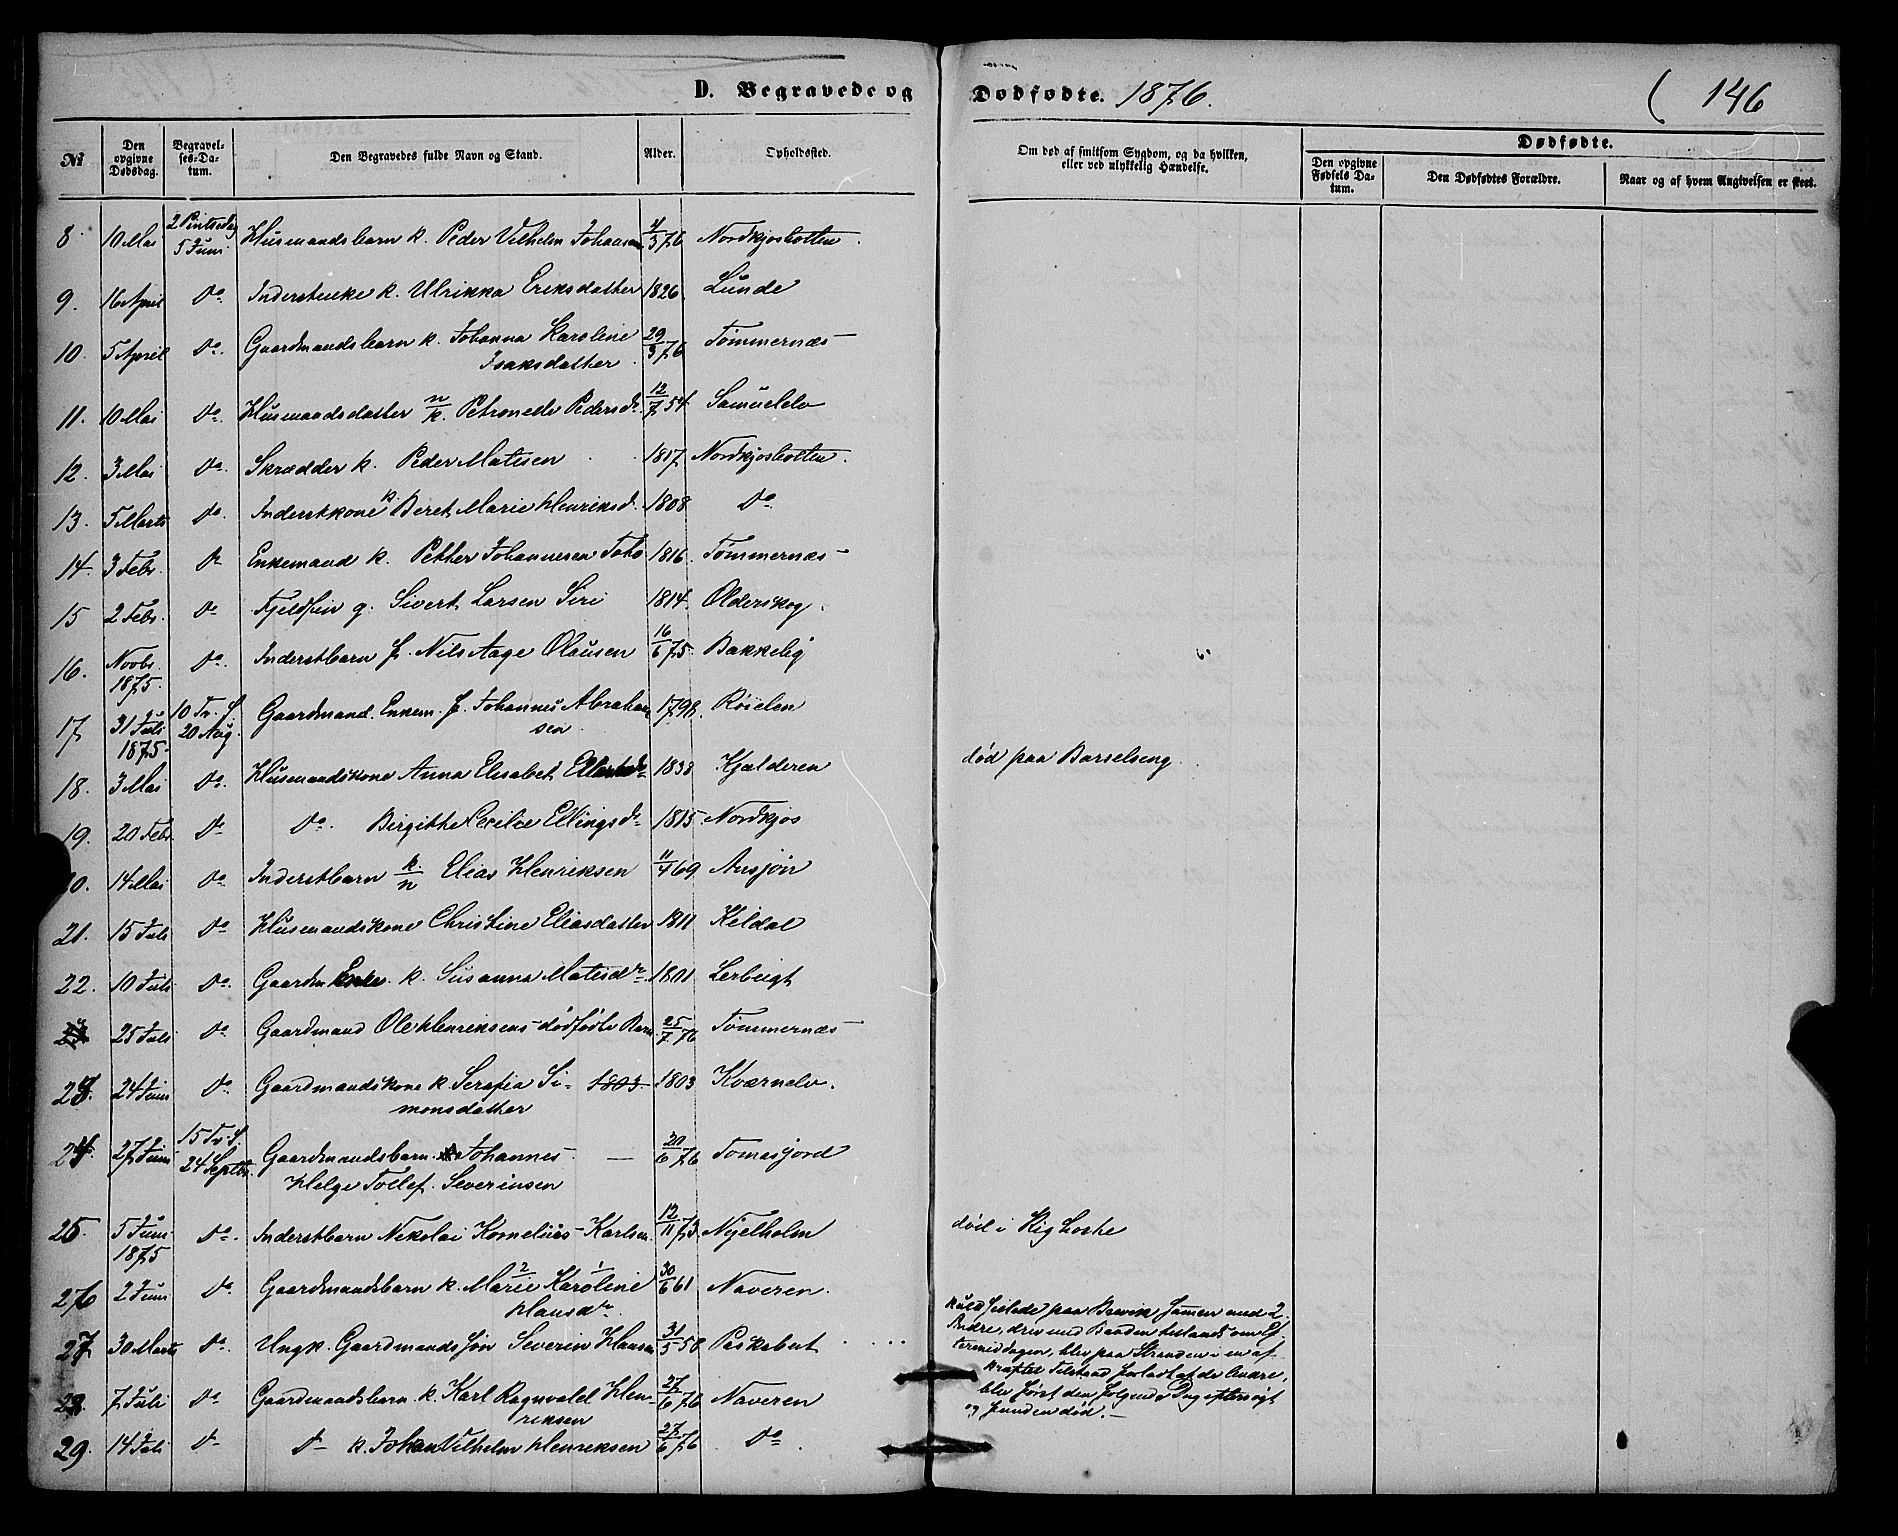 D. Begravede og Dødfødte. 1876. ( 146
№ Den opgivne Dødsdag. Begravelses-Datum. Den Begravedes fulde Navn og Stand. Alder. Opholdssted. Om død af smitsom Sygdom, og da hvilken, eller ved ulykkelig Hændelse. Dødfødte.
Den opgivne Fødsels Datum. Den Dødfødtes Forældre. Naar og af hvem Angivelsen er skeet.
8. 10 Mai 2 Pintsedag 5 Juni Husmandsbarn k. Peder Vilhelm Johansen 4/3 76 Nordkjosbotten.
9. 16 April Do. Inderstenke k. Ulrikka Eriksdatter 1826. Lunde
10. 5 April Do. Gaardmandsbarn k. Johanna Karoline 29/3 76 Tømmernæs
Isaksdatter.
11. 10 Mai Do. Husmandsdatter n/k. Petronele Pedersdr. 12/7 54. Samuelelv
12. 3 Mai Do. Skrædder k. Peder Matisen 1817. Nordkjosbotten.
13. 5 Marts Do. Inderstkone k. Beret Marie Henriksd. 1808 Do.
14. 3 Febr. Do Enkemand k. Petter Johannesen 1816. Tømmernæs
15 2 Febr. Do Fjeldfin g. Sivert Larsen Siri 1814. Olderskog.
16. Novbr. 1875. Do. Inderstbarn f. Nils Aage Olausen 16/6 75. Bakkelig
17 31 Juli 1875. 10 Tr. S. 20 Aug. Gaardmand. Enkem. f. Johannes Abraham- 1798. Røielen
sen.
18. 3 Mai Do. Husmandskone Anna Elisabet 1838 Kjelderen død paa Barselseng.
19. 20 Febr. Do Do. Birgitte Cecilie Ellingsdr. 1815. Nordkjos
20. 14 Mai Do. Inderstbarn k./n Elias Henriksen 11/4 69 Ansjøn
21. 15 Juli Do Husmandskone Christine Eliasdatter 1811 Kildal
22. 10 Juli Do. Gaardm Enke. k. Susanna Matisdr. 1801 Lerbeigt
25 Juli Do Gaardmand Ole Henriksens dødfødte Barn. 25/7 76 Tømmernæs
23. 24 Juni Do Gaardmandskone k. Serafia Si- 1803. 1803 Kværnelv.
monsdatter
24. 27 Juni 15 Tr. S. 24 Septbr. Gaardmandsbarn. Johannes — 20/6 76 Tomasjord
Helge Tollef. Severinsen
25. 5 Juni 1875 Do. Inderstbarn Nikolai Kornelius Karlsen 12/11 73. Nyelholm død i
26 2 Juni Do. Gaardmandsbarn k. Marie 2 Karoline 1 30/6 61 Naveren.
Hansdr.
27 30 Marts Do. Ungk. Gaardmandssøn Severin Hansen 31/5 58 Paskabut
28. 7 Juli Do Gaardmandsbarn k. Karl Ragnvald Hen- 27/6 76 Naveren
riksen
29. 14 Juli Do Do k. Johan Vilhelm Henriksen 27/6 76 Do
paa sammen med 2
Andre, drev med Baaden
termiddagen, blev paa Stranden i en af-
kræftet Tilstand forladt af de Andre,
blev først den følgende Dag eftersøgt
og funden død.